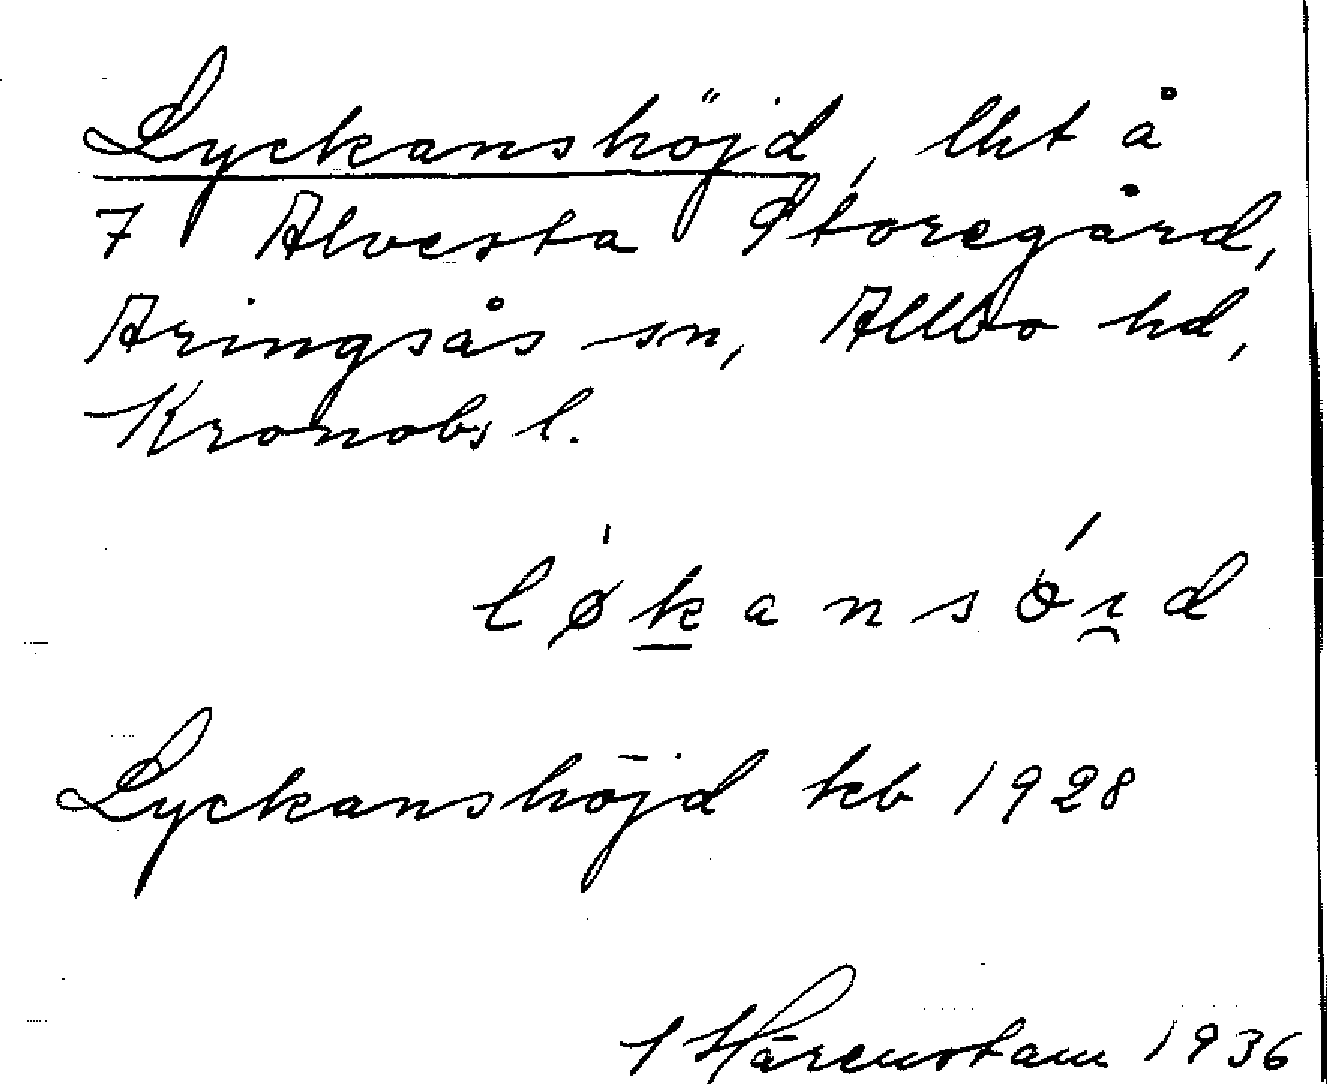 Lyckanshöjd, lht å
7 Alvesta Storegård,
Aringsås sn, Allbo hd,
Kronobs l.
lǿkansɵ́i̯d
Lyckanshöjd kb 1928
Härenstam 1936